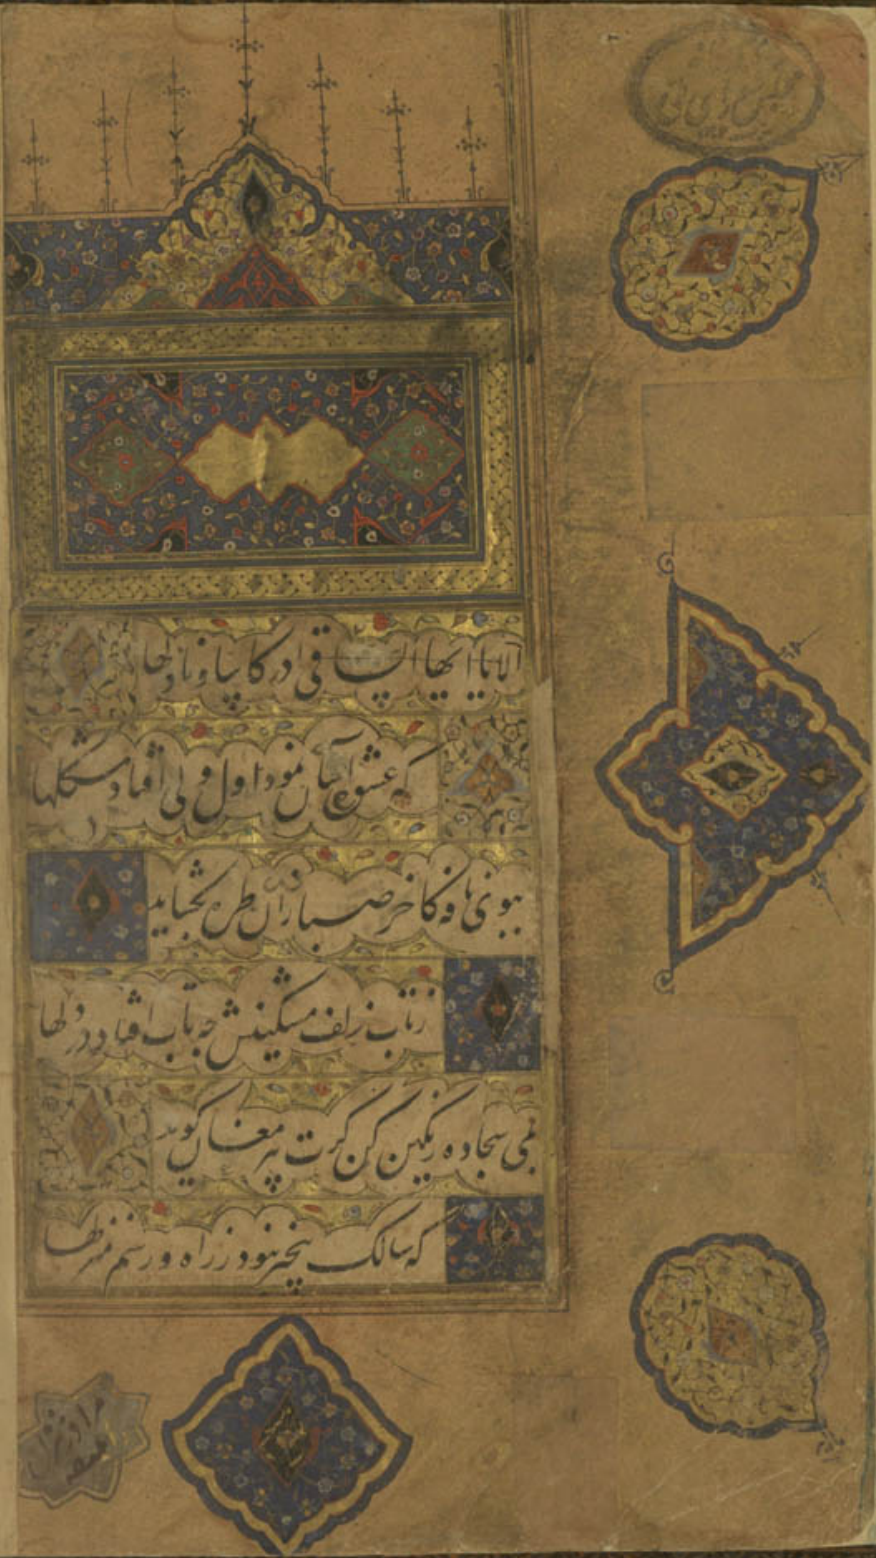 الا یا ایها الساقی ادر کاسا و ناولها
که عشق آسان نمود اول ولی افتاد مشکلها
ببوی نافه کاخر صبا زان طره بگشاید
ز تاب زلف مشکینش چه تاب افتاد در دلها
بمی سجاده رنگین کن گرت پیر مغان گوید
که سالک بیخبر نبود ز راه و رسم منزلها
مجلس شورای ملی